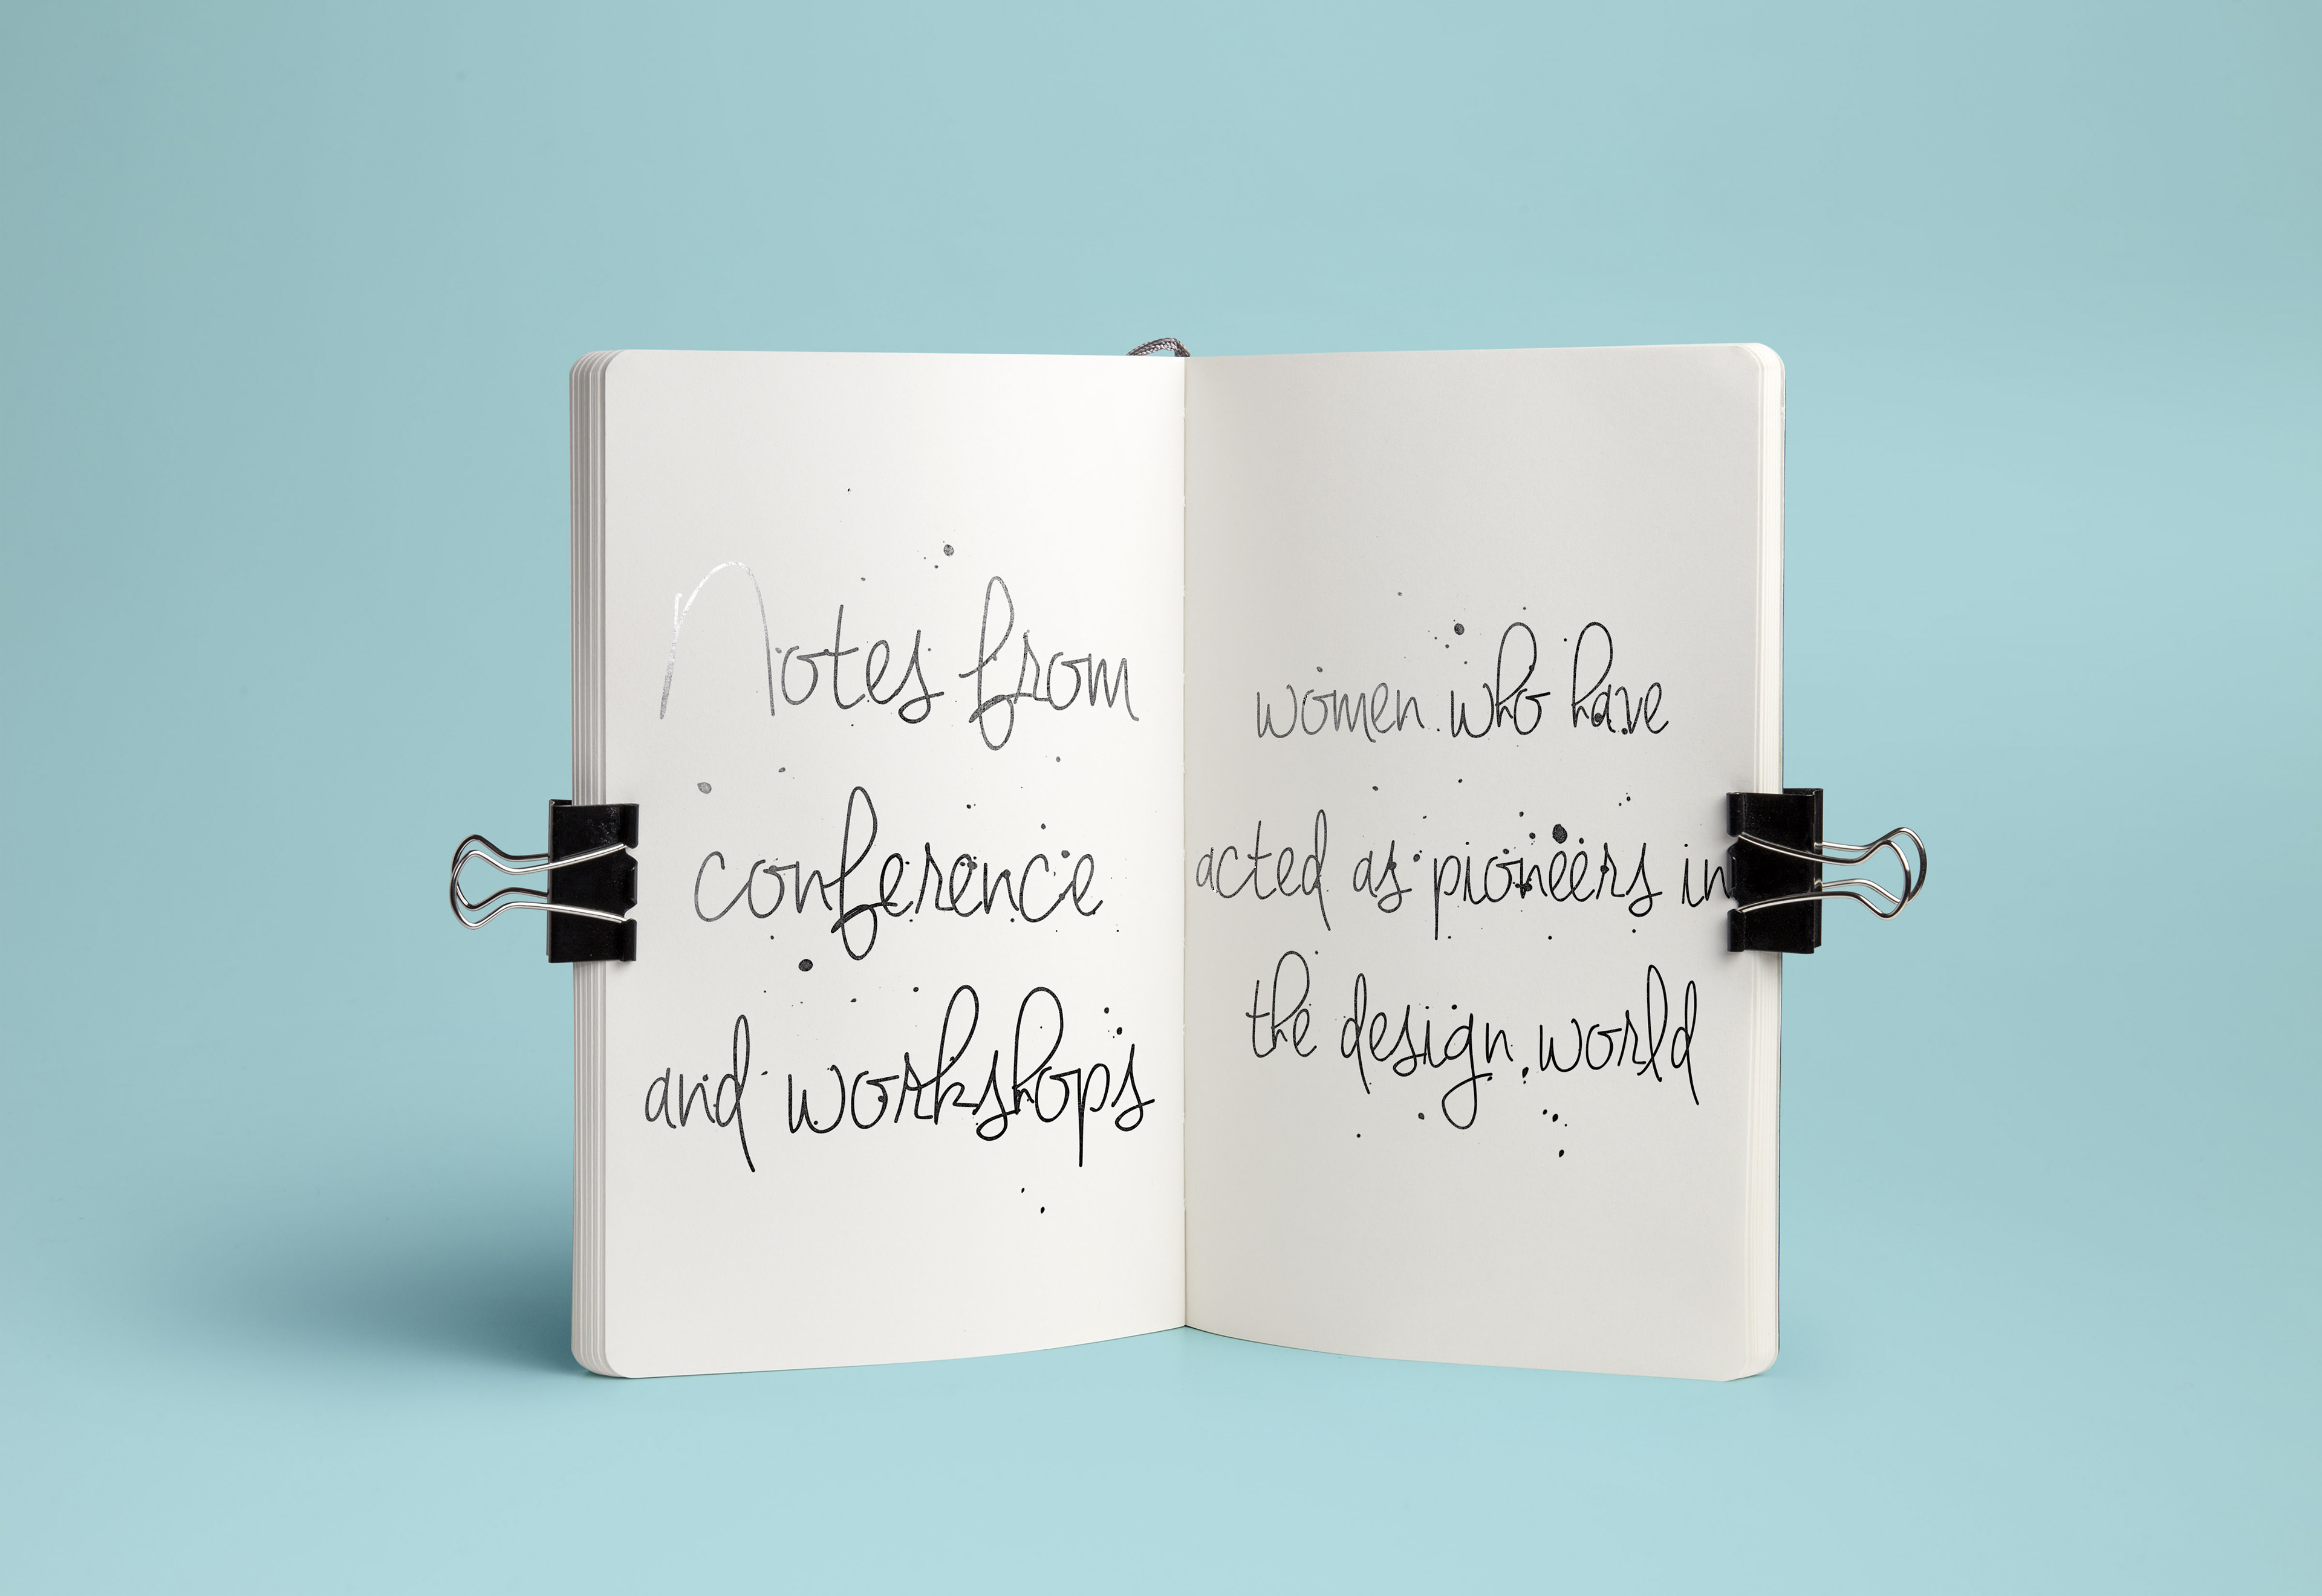 Notes from
conference
and workshops
women who have
acted as pioneers in
the design world